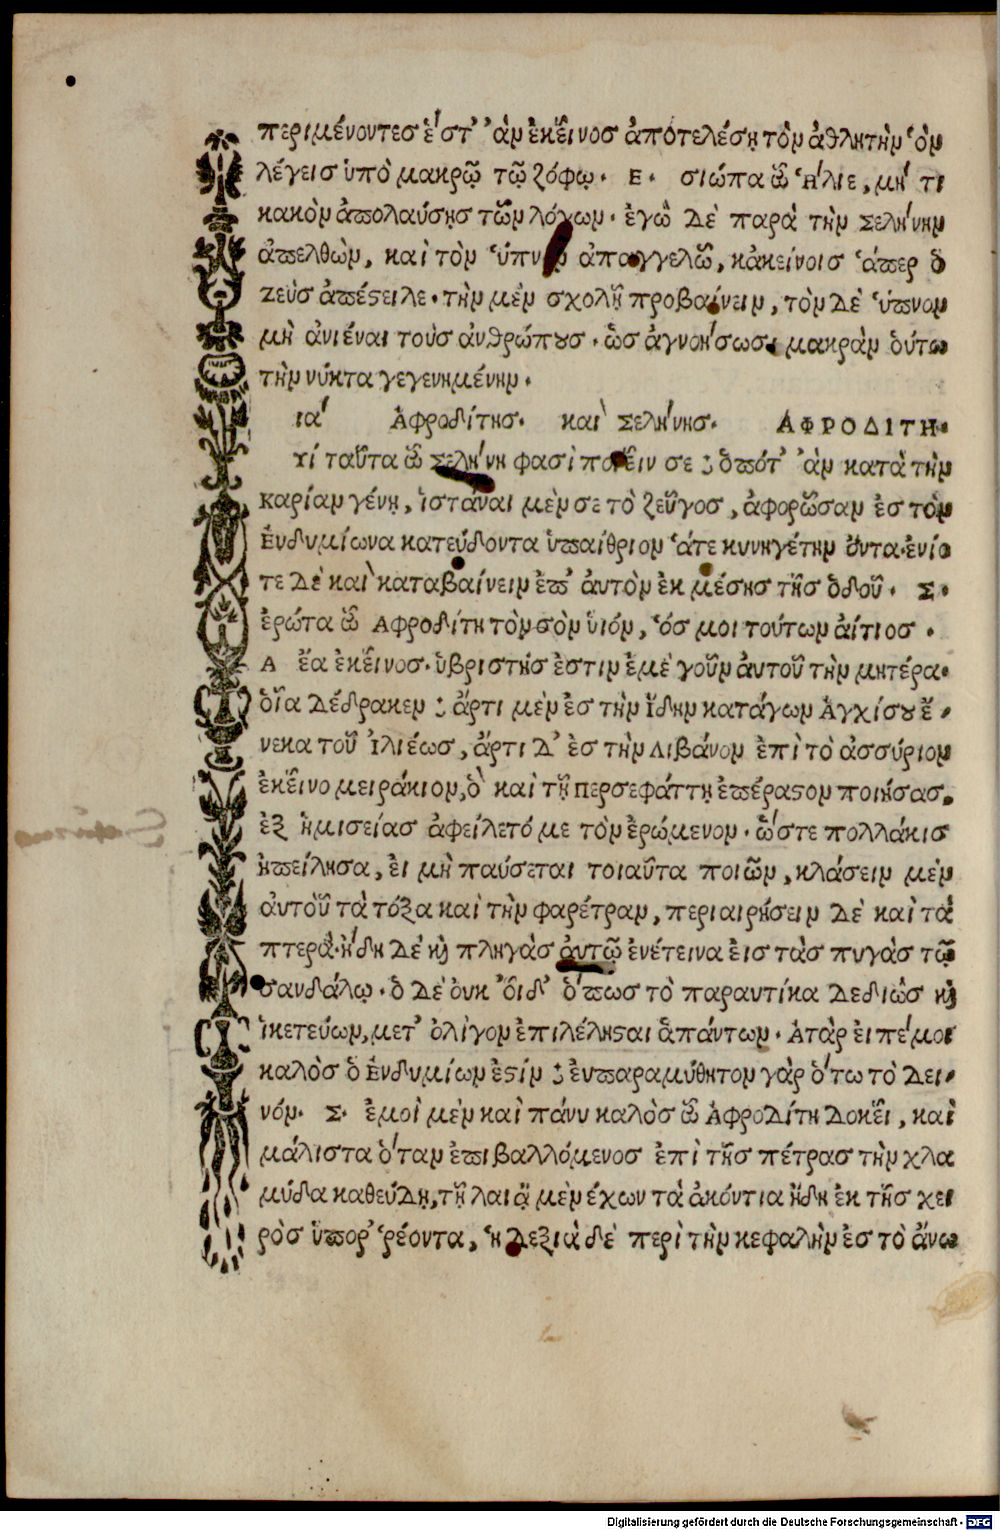 περιμένοντες ἔστ' ἂν ἐκεῖνος ἀποτελέσῃ τὸν ἀθλητὴν ὃν
λέγεις ὑπὸ μακρῷ τῷ ζόφῳ. Ε. σιώπα ὦ Ἥλιε, μή τι
κακὸν ἀπολαύσῃς τῶν λόγων. ἐγὼ δὲ παρὰ τὴν Σελήνην
ἀπελθὼν, καὶ τὸν ὕπνον ἀπαγγελῶ, κἀκείνοις ἅπερ ὁ
Ζεὺς ἀπέϛειλε. τὴν μὲν σχολῇ προβαίνειν, τὸν δὲ ὕπνον
μὴ ἀνιέναι τοὺς ἀνθρώπȣς. ὡς ἀγνοήσωσι μακρὰν ὁύτω
τὴν νύκτα γεγενημένην.
ια' Ἀφροδίτης. καὶ Σελήνης. ΑΦΡΟΔΙΤΗ.
Τί ταῦτα ὦ Σελήνη φασὶ ποιεῖν σε; ὁπότ' ἂν κατὰ τὴν
Καρίαν γένῃ, ἱστάναι μὲν σε τὸ ζεῦγος, ἀφορῶσαν ἐς τὸν
Ἐνδυμίωνα κατεύδοντα ὑπαίθριον ἅτε κυνηγέτην ὄντα. ἐνίο
τε δὲ καὶ καταβαίνειν ἐπ' ἀυτὸν ἐκ μέσης τῆς ὁδοῦ. Σ.
ἐρώτα ὦ Ἀφροδίτη τὸν σὸν ὑιόν, ὅς μοι τούτων ἀίτιος.
Α ἔα ἐκεῖνος. ὑβριστής ἐστιν ἐμὲ γοῦν ἀυτοῦ τὴν μητέρα.
ὁῖα δέδρακεν; ἄρτι μὲν ἐς τὴν Ἴδην κατάγων Ἀγχίσȣ ἕ-
νεκα τοῦ Ἰλιέως, ἄρτι δ' ἐς τὴν Λιβάνον ἐπὶ τὸ ἀσσύριον
ἐκεῖνο μειράκιον, ὃ καὶ τῇ Περσεφάττῃ ἐπέραϛον ποιήσας.
ἐξ ἡμισείας ἀφείλετό με τὸν ἐρώμενον. ὥστε πολλάκις
ἠπείλησα, ἐι μὴ παύσεται τοιαῦτα ποιῶν, κλάσειν μὲν
ἀυτοῦ τὰ τόξα καὶ τὴν φαρέτραν, περιαιρήσειν δὲ καὶ τὰ
πτερά. ἤδη δὲ ϗ πληγὰς ἀυτῷ ἐνέτεινα ἐις τὰς πυγὰς τῷ
σανδάλῳ. ὁ δὲ ὀυκ ὄιδ' ὅπως τὸ παραυτίκα δεδιὼς ϗ
ἱκετεύων, μετ' ὀλίγον ἐπιλέληϛαι ἁπάντων. Ἀτὰρ ἐιπέμοι
καλὸς ὁ Ἐνδυμίων ἐϛίν; ἐυπαραμύθητον γὰρ ὅτω τὸ δει-
νόν. Σ. ἐμοὶ μὲν καὶ πάνυ καλὸς ὦ Ἀφροδίτη δοκεῖ, καὶ
μάλιστα ὅταν ἐπιβαλλόμενος ἐπὶ τῆς πέτρας τὴν χλα
μύδα καθεύδῃ, τῇ λαιᾷ μὲν ἔχων τὰ ἀκόντια ἤδη ἐκ τῆς χει
ρὸς ὕπορ' ῥέοντα, ἡ δεξιὰ δὲ περὶ τὴν κεφαλὴν ἐς τὸ ἄνω
Digitalisierung gefördert durch die Deutsche Forschungsgemeinschaft - DFG